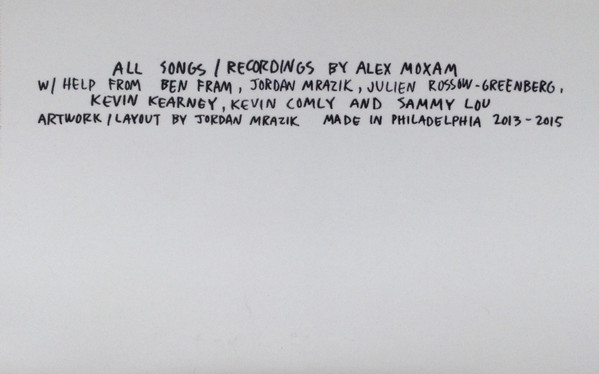 ALL SONGS / RECORDINGS BY ALEX MOXAM
W/ HELP FROM BEN FRAM, JORDAN MRAZIK, JULIEN ROSSOW-GREENBERG,
KEVIN KEARNEY, KEVIN COMLY AND SAMMY LOU
ARTWORK / LAYOUT BY JORDAN MRAZIK MADE IN PHILADELPHIA 2013-2015